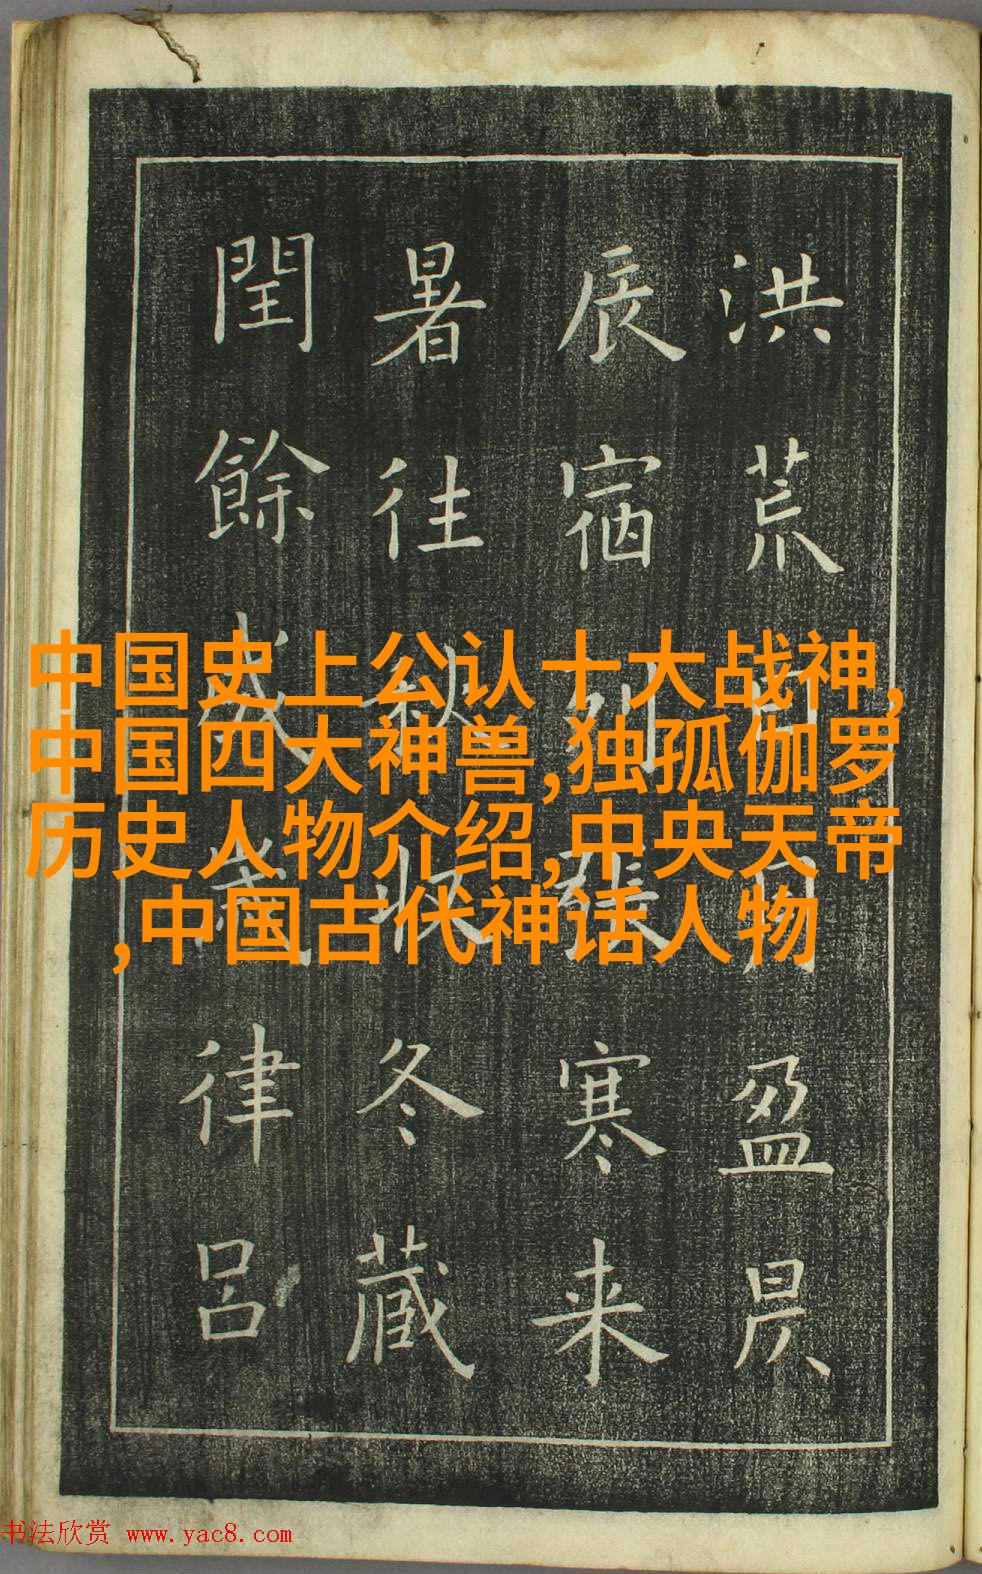 洪荒日月盈昃
辰宿列張寒来
暑往秋收冬藏
閏餘成歲律呂
中国史上公认十大战神,
中国四大神兽,独孤伽罗
历史人物介绍,中央天帝
,中国古代神话人物
书法欣赏 www.yac8.com